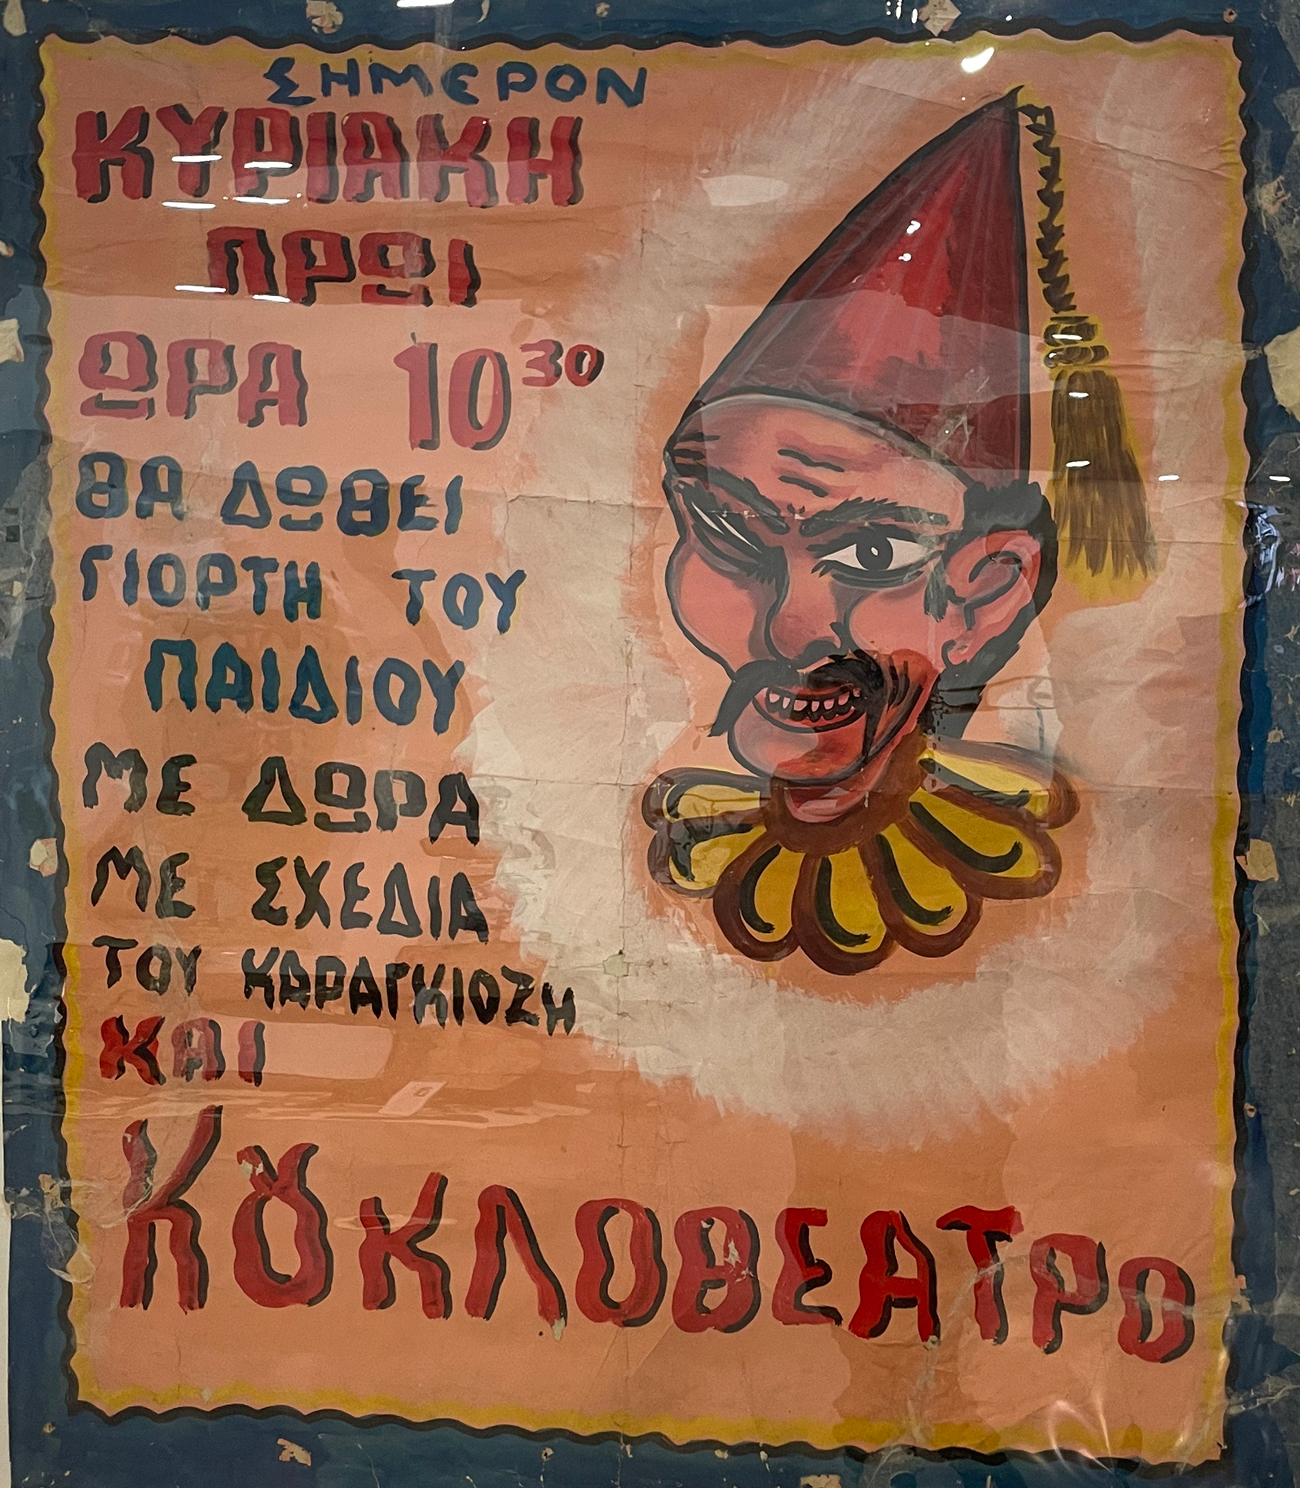 ΣΗΜΕΡΟΝ
ΚΥΡΙΑΚΗ
ΠΡΩΙ
ΩΡΑ 10³⁰
ΘΑ ΔΩΘΕΙ
ΓΙΟΡΤΗ ΤΟΥ
ΠΑΙΔΙΟΥ
ΜΕ ΔΩΡΑ
ΜΕ ΣΧΕΔΙΑ
ΤΟΥ ΚΑΡΑΓΚΙΟΖΗ
ΚΑΙ
ΚȢΚΛΟΘΕΑΤΡΟ